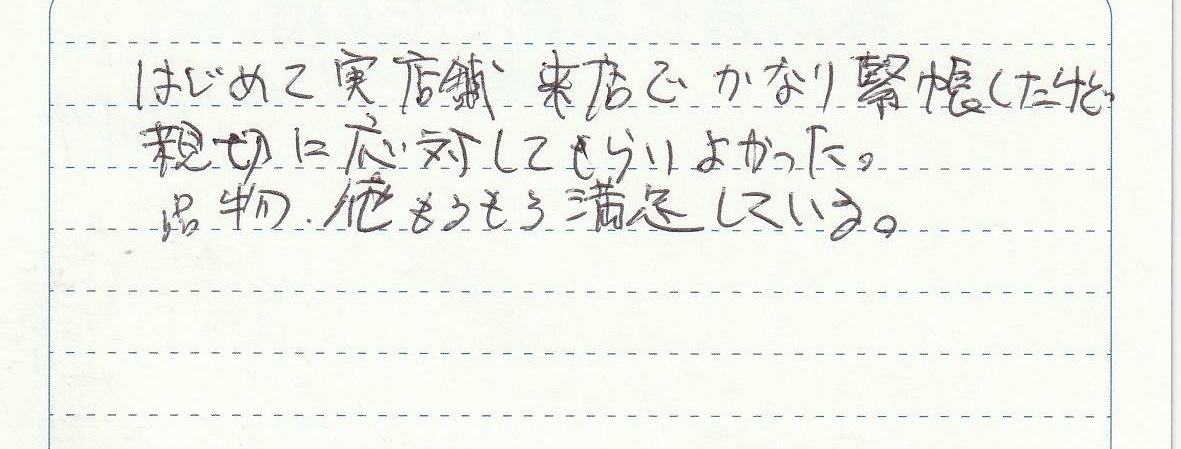 はじめて実店舗来店でかなり緊張したけど
親切に応対してもらいよかった。
品物、他もろもろ満足している。